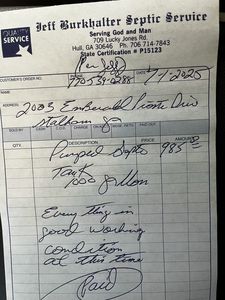 QUALITY
SERVICE
Jeff Burkhalter Septic Service
Serving God and Man
709 Lucky Jones Rd.
Hull, GA 30646 Ph. 706 714-7843
State Certification # P15123
CUSTOMER'S ORDER NO.
PHONE
DATE
770 539-0288
7-1-2025
ADDRESS
2003
SOLD BY
CASH
C.O.D.
CHARGE
PAID OUT
QTY.
DESCRIPTION
PRICE
AMOUNT
Pumped Septic
985
Tank
1000
Everything in
good working
condition
at this time
Paid